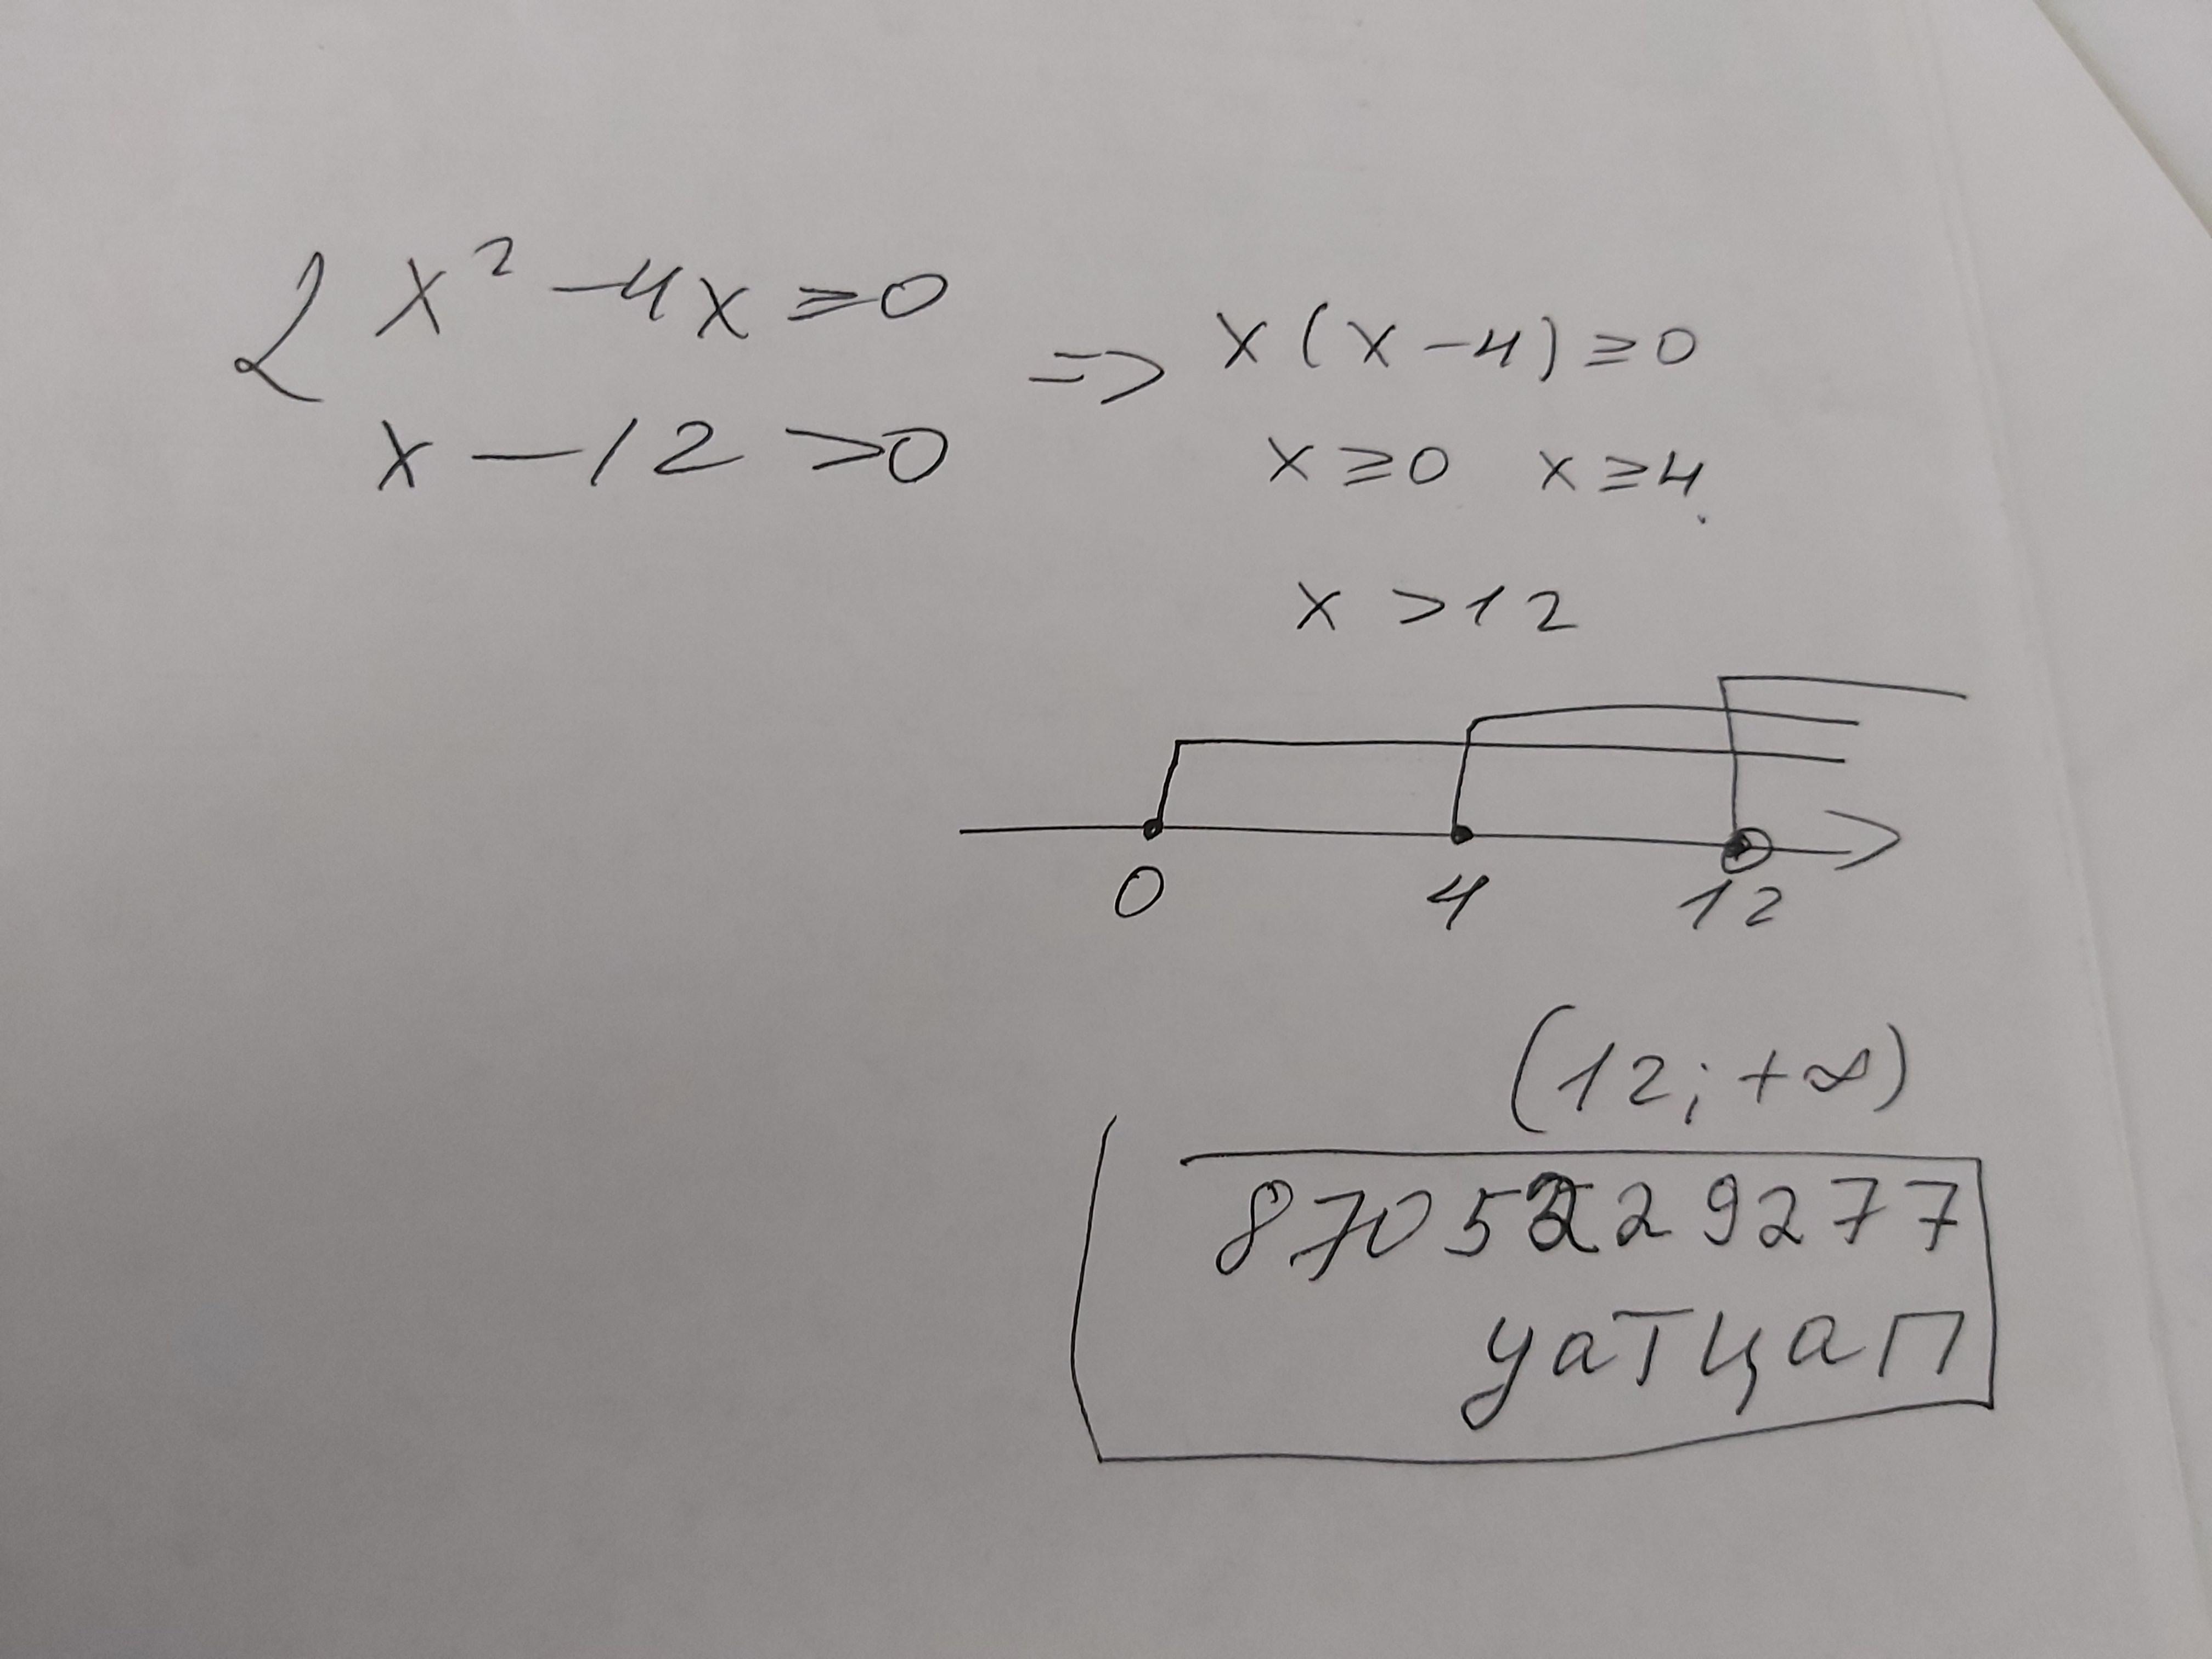 { x² - 4x ≥ 0
x - 12 > 0
⇒ x(x - 4) ≥ 0
x ≥ 0 x ≥ 4
x > 12
0 4 12
(12; +∞)
87052229277
уатцап